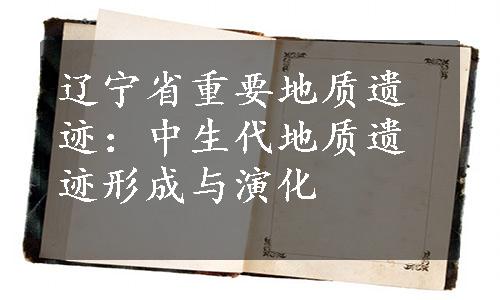 辽宁省重要地质遗
迹：中生代地质遗
迹形成与演化